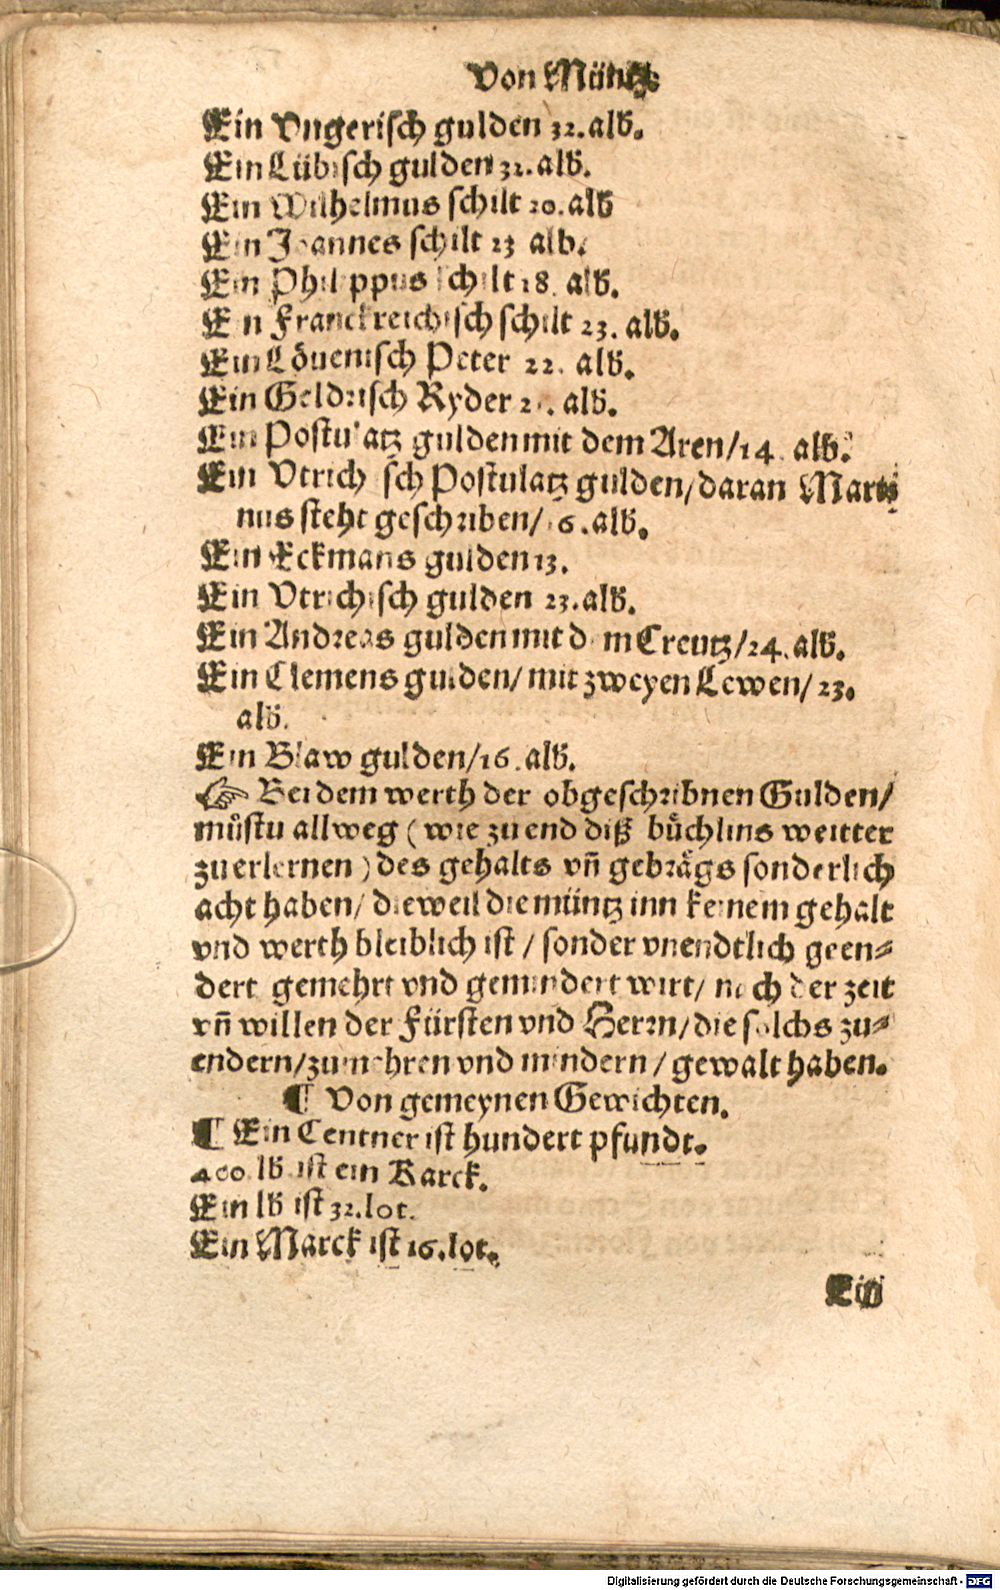 Von Müntz
Ein Vngerisch gulden 32. alb.
Ein Lübisch gulden 32. alb.
Ein Wilhelmus schilt 20. alb
Ein Joannes schilt 23 alb.
Ein Philippus schilt 18. alb.
Ein Franckreichisch schilt 23. alb.
Ein Lövenisch Peter 22. alb.
Ein Geldrisch Ryder alb.
Ein Postulatz gulden mit dem Aren/14. alb.
Ein Vtrichisch Postulatz gulden/daran Marti
nus steht geschriben/ alb.
Ein Eckmans gulden 13.
Ein Vtrichisch gulden 23. alb.
Ein Andreas gulden mit dem Creutz/24. alb.
Ein Clemens gulden/ mit zweyen Lewen/ 23.
alb.
Ein Blaw gulden/16. alb.
☞ Bei dem werth der obgeschribnen Gulden/
můstu allweg (wie zu end diß bůchlins weitter
zu erlernen) des gehalts vn̄ gebrägs sonderlich
acht haben/ dieweil die müntz inn keinem gehalt
vnd werth bleiblich ist / sonder vnendtlich geen⸗
dert gemehrt vnd gemindert wirt/ nach der zeit
vn̄ willen der Fürsten vnd Herrn/die solchs zu⸗
endern/zumehren vnd mindern / gewalt haben.
¶ Von gemeynen Gewichten.
¶ Ein Centner ist hundert pfundt.
400. lb ist ein Karck.
Ein lb ist 32. lot.
Ein Marck ist 16. lot.
Ein
Digitalisierung gefördert durch die Deutsche Forschungsgemeinschaft - DFG